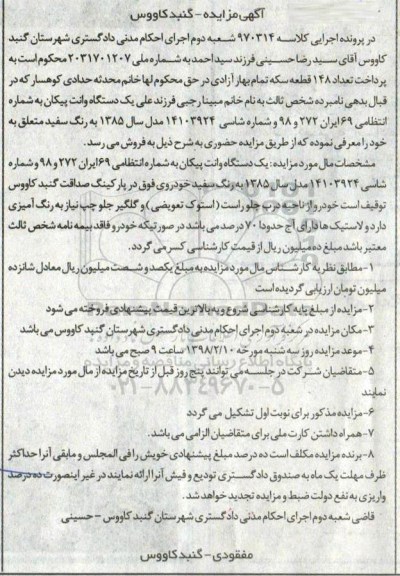 آگهی مزایده - گنبدکاووس
در پرونده اجرایی کلاسه ۹۷۰۳۱۴ شعبه دوم اجرای احکام مدنی دادگستری شهرستان گنبد
کاووس آقای سید رضا حسینی فرزند سید احمد به شماره ملی ۲۰۳۱۷۰۱۲۰۷ محکوم است به
پرداخت تعداد ۱۴۸ قطعه سکه تمام بهار آزادی در حق محکوم لها خانم محدثه حدادی کوهسار که در
قبال بدهی نامبرده شخص ثالث به نام خانم مبینا رجبی فرزند علی یک دستگاه وانت پیکان به شماره
انتظامی ۶۹ ایران ۲۷۲ و ۹۸ و شماره شاسی ۱۴۱۰۳۹۲۴ مدل سال ۱۳۸۵ به رنگ سفید متعلق به
خود را معرفی نموده که از طریق مزایده حضوری به شرح ذیل به فروش می رسد.
مشخصات مال مورد مزایده: یک دستگاه وانت پیکان به شماره انتظامی ۶۹ ایران ۲۷۲ و ۹۸ و شماره
شاسی ۱۴۱۰۳۹۲۴ مدل سال ۱۳۸۵ به رنگ سفید خودروی فوق در پارکینگ صداقت گنبد کاووس
توقیف است خودرو از ناحیه درب جلو راست (استوک تعویضی) و گلگیر جلو چپ نیاز به رنگ آمیزی
دارد و لاستیک ها دارای آج حدودا ۷۰ درصد می باشد در صورتیکه خودرو فاقد بیمه نامه شخص ثالث
معتبر باشد مبلغ ده میلیون ریال از قیمت کارشناسی کسر می گردد.
۱- مطابق نظریه کارشناس مال مورد مزایده به مبلغ یکصد و شصت میلیون ریال معادل شانزده
میلیون تومان ارزیابی گردیده است
۲- مزایده از مبلغ پایه کارشناسی شروع و به بالاترین قیمت پیشنهادی فروخته می شود
۳- مکان مزایده در شعبه دوم اجرای احکام مدنی دادگستری شهرستان گنبد کاووس می باشد
۴- موعد مزایده روز سه شنبه مورخه ۱۳۹۸/۲/۱۰ ساعت ۹ صبح می باشد
۵- متقاضیان شرکت در جلسه می توانند پنج روز قبل از تاریخ مزایده از مال مورد مزایده دیدن
نمایند
۶- مزایده مذکور برای نوبت اول تشکیل می گردد
۷- همراه داشتن کارت ملی برای متقاضیان الزامی می باشد.
۸- برنده مزایده مکلف است ده درصد مبلغ پیشنهادی خویش را فی المجلس و مابقی آنرا حداکثر
ظرف مهلت یک ماه به صندوق دادگستری تودیع و فیش آنرا ارائه نمایند در غیر اینصورت ده درصد
واریزی به نفع دولت ضبط و مزایده تجدید خواهد شد.
قاضی شعبه دوم اجرای احکام مدنی دادگستری شهرستان گنبد کاووس - حسینی
مفقودی - گنبدکاووس
۰۲۱-۸۸۳۴۹۶۷۰-۵